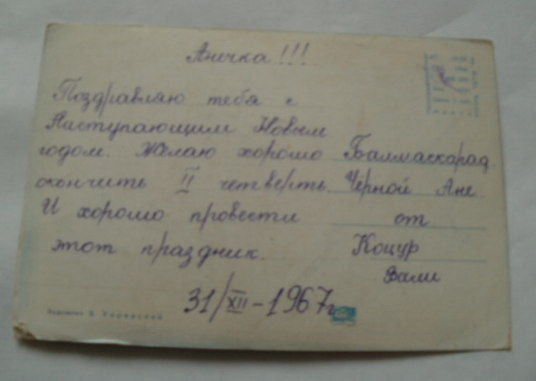 Анечка!!!
Поздравляю тебя с
Наступающим Новым
годом. Желаю хорошо
окончить II четверть.
И хорошо провести
этот праздник.
Балмаскарад
Черной Ане
от
Коцур
Вали
31/XII-1967г.
Художник